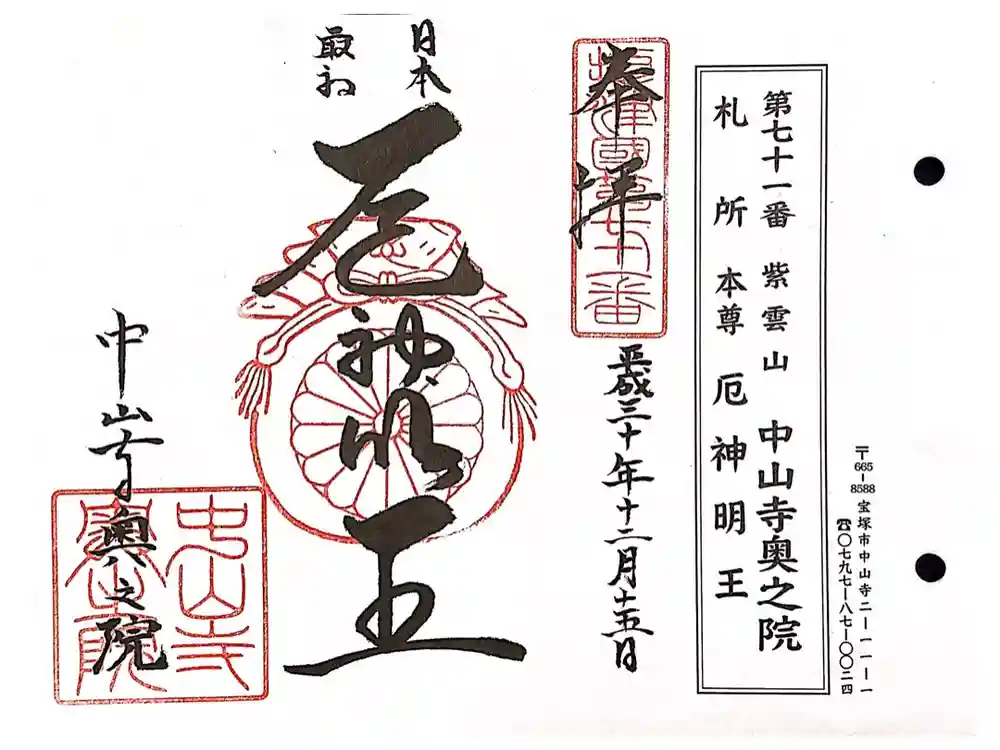 〒665-8588 宝塚市中山寺二ー一一ー一
☎〇七九七ー八七ー〇〇二四
第七十一番 紫雲山 中山寺奥之院
札所本尊 厄神明王
奉拝
平成三十年十二月十五日
日本
最初
厄神明王
中山寺奥之院
中山寺
奥之院